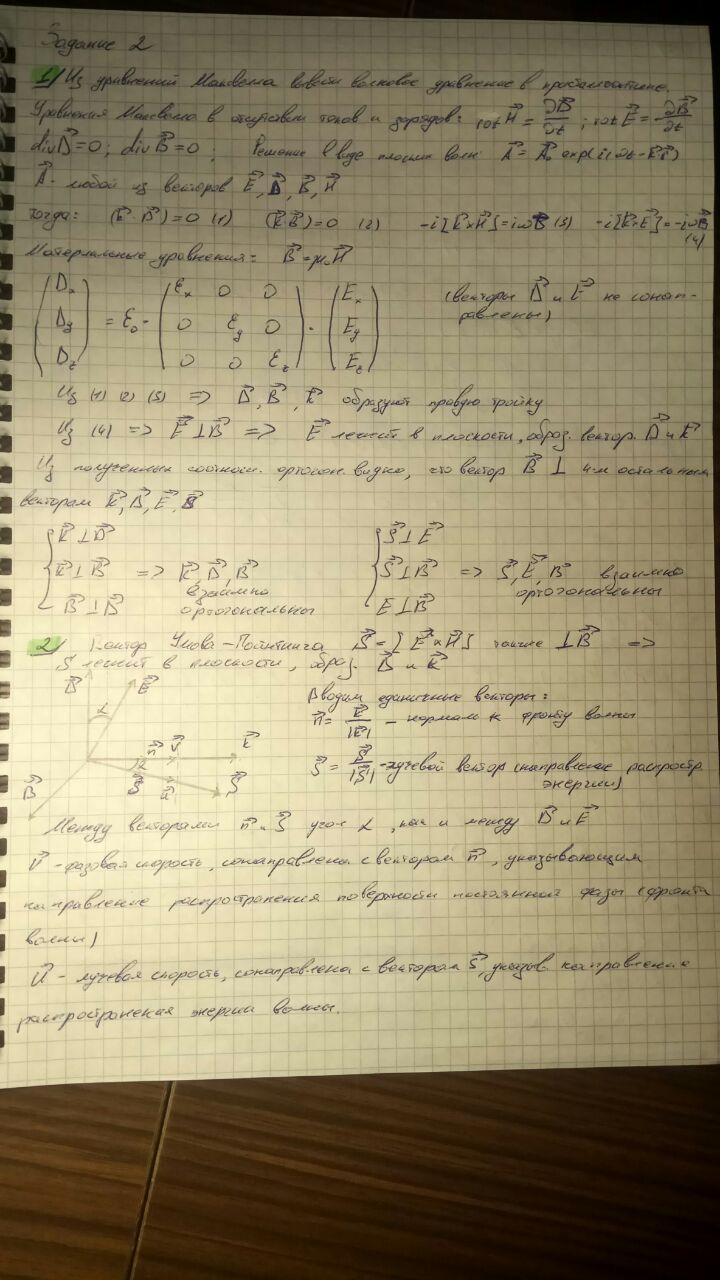 Задание 2
1) Из уравнений Максвелла вывести волновое уравнение в пространстве.
Уравнения Максвелла в отсутствии токов и зарядов: rot H⃗ = ∂B⃗/∂t ; rot E⃗ = -∂B⃗/∂t
div D⃗ = 0 ; div B⃗ = 0 ; Решение в виде плоских волн: A⃗ = A⃗₀ exp(i(ωt - k⃗r⃗)
A⃗ - любой из векторов E⃗, D⃗, B⃗, H⃗
тогда: (k⃗·D⃗) = 0 (1) (k⃗B⃗) = 0 (2) -i[k⃗×H⃗] = iωD⃗ (3) -i[k⃗×E⃗] = -iωB⃗ (4)
Материальные уравнения: B⃗ = μ₀H⃗
(Dx Dy Dz) = ε₀ · (εx 0 0 0 εy 0 0 0 εz) · (Ex Ey Ez) (векторы D⃗ и E⃗ не сонаправлены)
Из (1) (2) (3) => D⃗, B⃗, k⃗ образуют правую тройку
Из (4) => E⃗ ⊥ B⃗ => E⃗ лежит в плоскости, образ. вектор. D⃗ и k⃗
Из полученных соотнош. ортогон. видно, что вектор B⃗ ⊥ 4-м остальным
векторам k⃗, D⃗, E⃗,
{ k⃗ ⊥ D⃗
k⃗ ⊥ B⃗ => k⃗, D⃗, B⃗ взаимно ортогональны
B⃗ ⊥ D⃗
{ S⃗ ⊥ E⃗
S⃗ ⊥ B⃗ => S⃗, E⃗, B⃗ взаимно ортогональны
E ⊥ B⃗
2) Вектор Умова-Пойнтинга S⃗ = [E⃗×H⃗] также ⊥ B⃗ =>
S лежит в плоскости, образ. D⃗ и k⃗
D⃗ E⃗
α
n⃗ v⃗ k⃗
α
B⃗ s⃗ u⃗ S⃗
Вводим единичные векторы:
n⃗ = k⃗/|k⃗| - нормаль к фронту волны
s⃗ = S⃗/|S⃗| - лучевой вектор (направление распростр. энергии)
Между векторами n⃗ и s⃗ угол α, как и между D⃗ и E⃗
v⃗ - фазовая скорость, сонаправлена с вектором n⃗, указывающим
направление распространения поверхности постоянной фазы (фронта
волны)
u⃗ - лучевая скорость, сонаправлена с вектором s⃗, указыв. направление
распространения энергии волны.